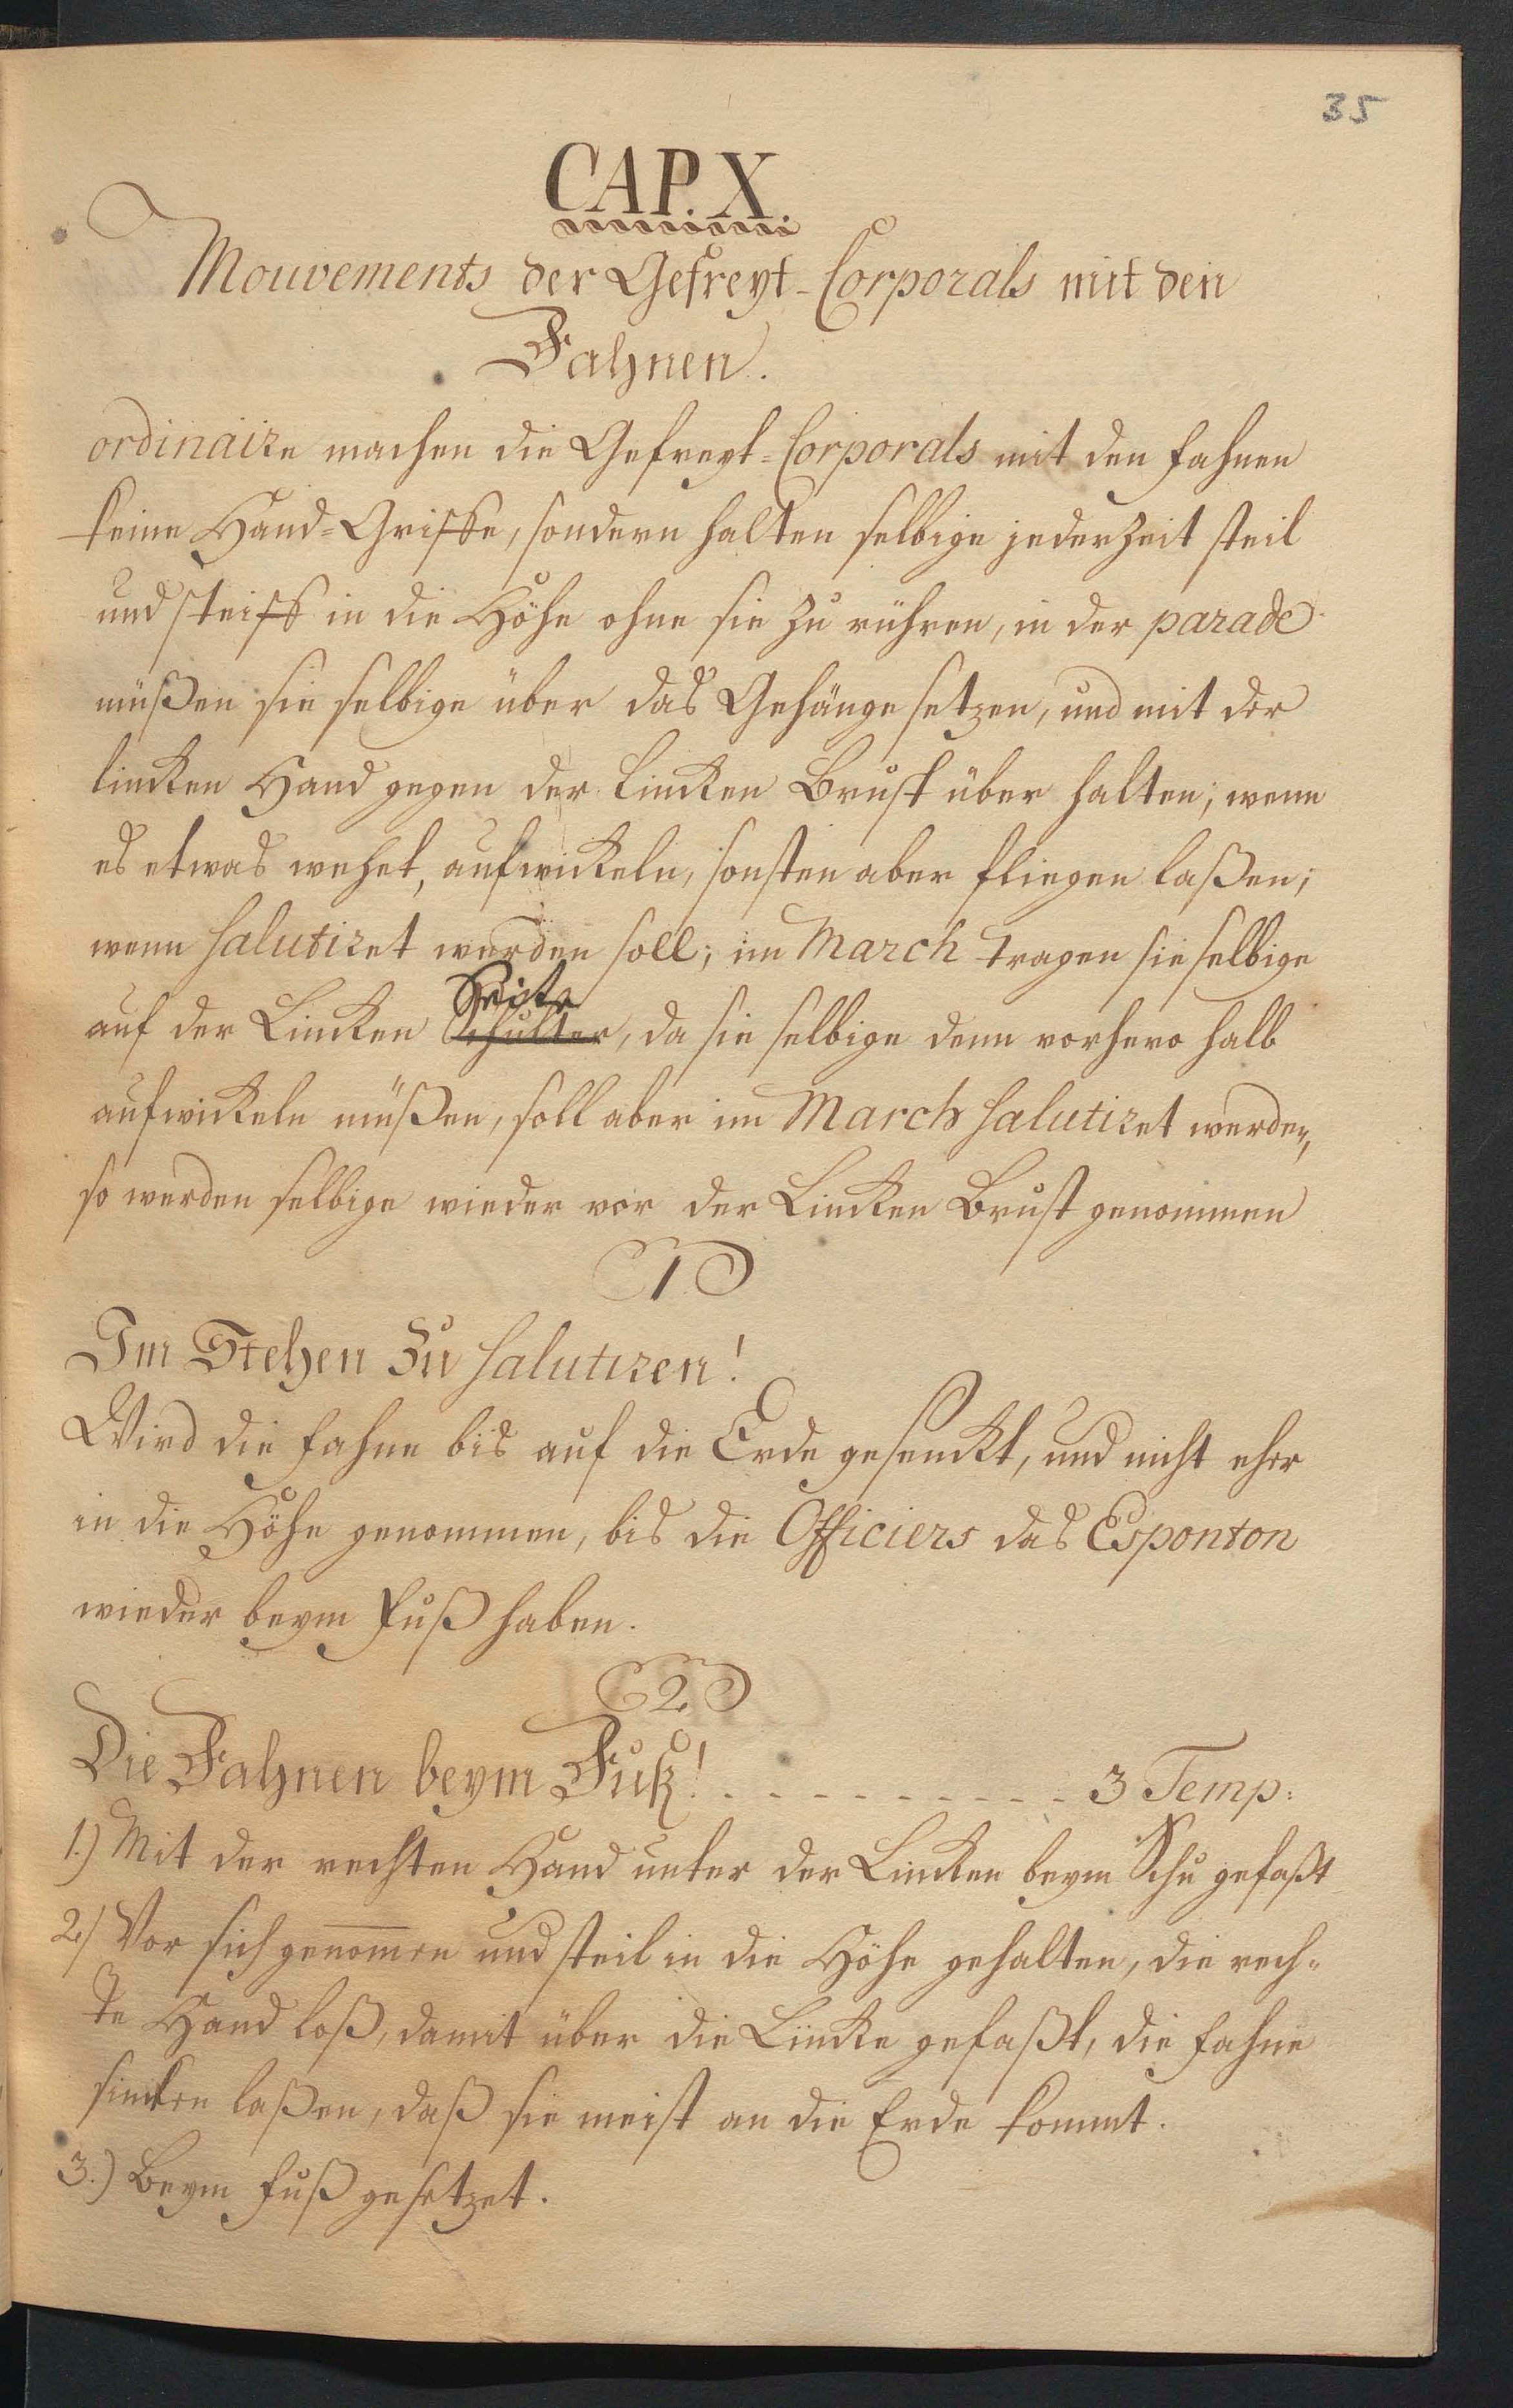 35
CAP. X.
Mouvements der Gefreyt-Corporals mit den
Fahnen.
ordinaire machen die Gefreyt-Corporals mit den Fahnen
keine Hand-Griffe, sondern halten selbige jederzeit steil
und steiff in die Höhe ohne sie zu rühren, in der parade
müßen sie selbige über das Gehänge setzen, und mit der
lincken Hand gegen der lincken Brust über halten; wenn
es etwas wehet, aufwickeln, sonsten aber fliegen laßen;
wenn salutiret werden soll; im March tragen sie selbige
Seite
auf der Lincken Schulter, da sie selbige denn vorhero halb
aufwickeln müßen, soll aber im March salutiret werden,
so werden selbige wieder vor der Lincken Brust genommen
1
Im Stehen zu salutiren!
Wird die Fahne bis auf die Erde gesenckt, und nicht eher
in die Höhe genommen, bis die Officiers das Esponton
wieder beym Fuß haben.
2.
Die Fahnen beym Fuß! - - - - - - - - - - 3 Temp:
1.) Mit der rechten Hand unter der Lincken beym Schu gefaßt
2.) Vor sich genom̅en und steil in die Höhe gehalten, die rech-
te Hand loß, damit über die Lincke gefaßt, die Fahne
sincken laßen, daß sie meist an die Erde kommt.
3.) Beym Fuß gesetzet.